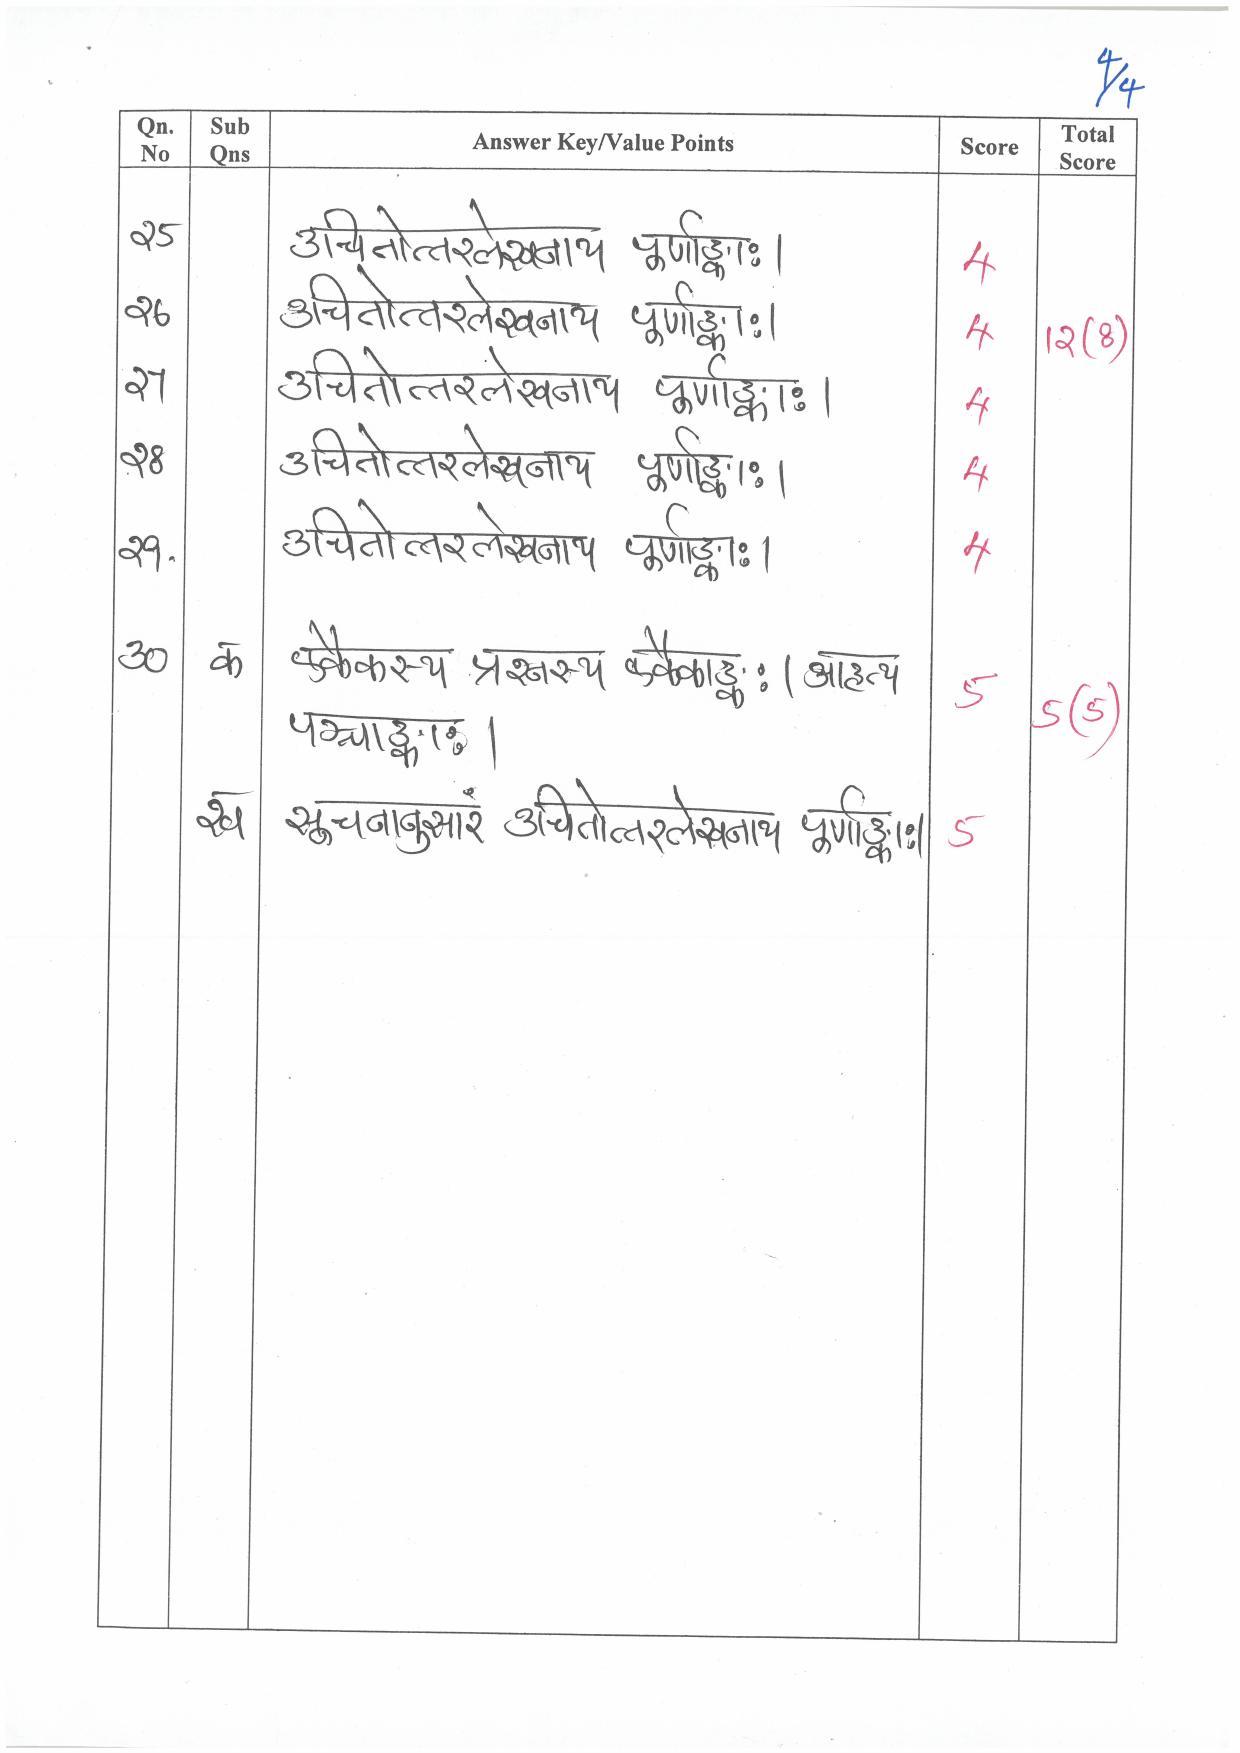 4/4
Qn. No Sub Qns Answer Key/Value Points Score Total Score
२५ उचितोत्तरलेखनाय पूर्णाङ्काः। 4
२६ उचितोत्तरलेखनाय पूर्णाङ्काः। 4 १२(8)
२७ उचितोत्तरलेखनाय पूर्णाङ्काः। 4
२८ उचितोत्तरलेखनाय पूर्णाङ्काः। 4
२९. उचितोत्तरलेखनाय पूर्णाङ्काः। 4
३० क एकैकस्य प्रश्नस्य एकैकाङ्कः। आहत्य 5 5(5)
पञ्चाङ्काः।
ख सूचनानुसारं उचितोत्तरलेखनाय पूर्णाङ्काः। 5